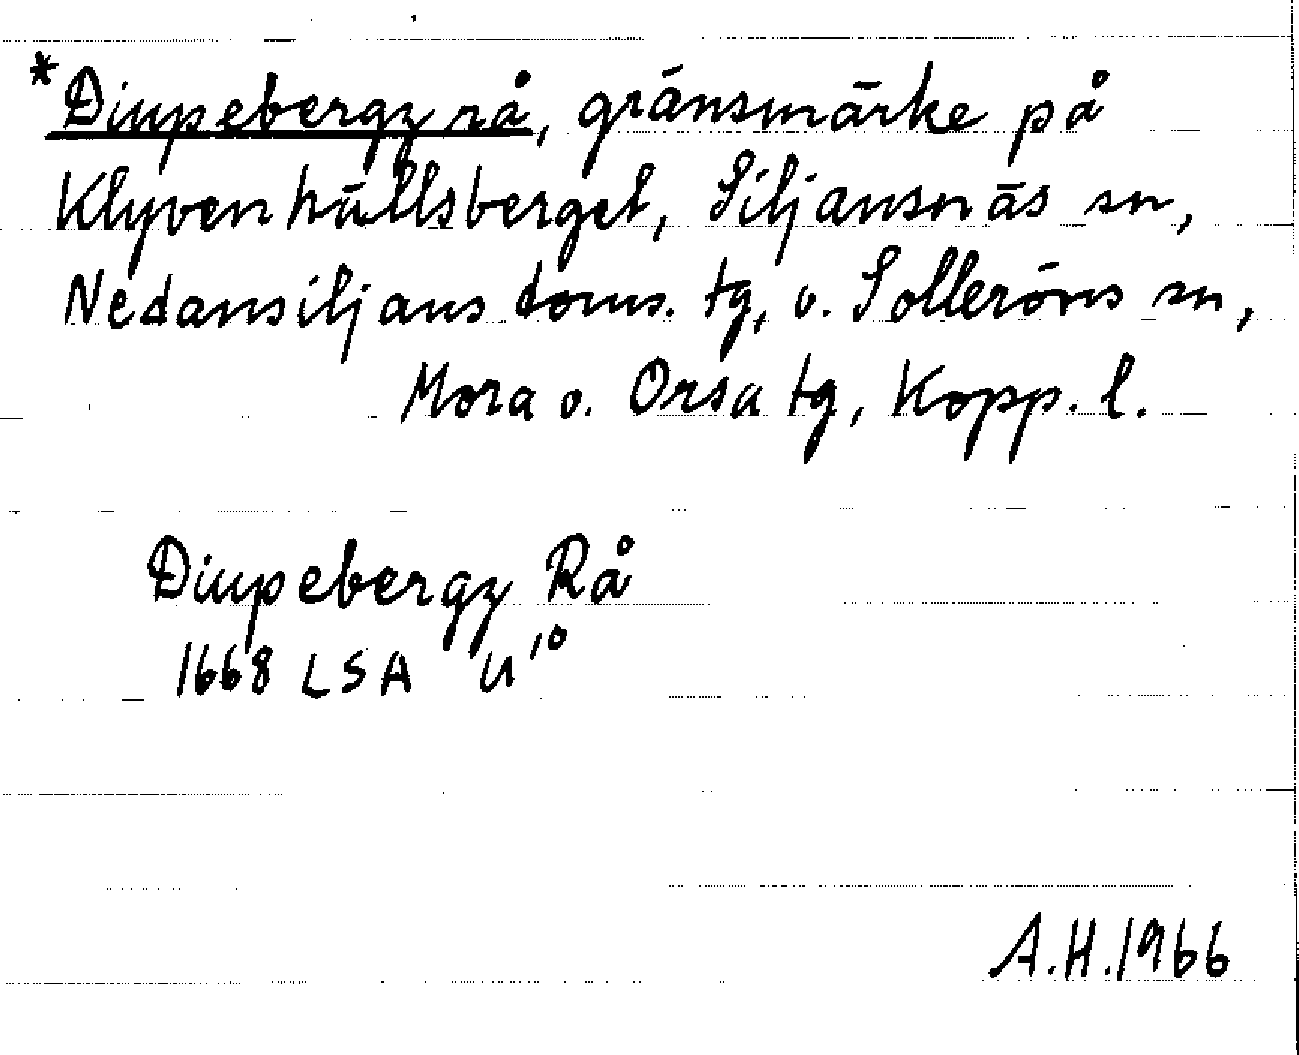 *Diupebergz rå, gränsmärke på
Klyvenhällsberget, Siljansnäs sn,
Nedansiljans doms. tg, o. Solleröns sn,
Mora o. Orsa tg, Kopp. l.
Diupebergz Rå
1668 LSA U 10
A.H.1966